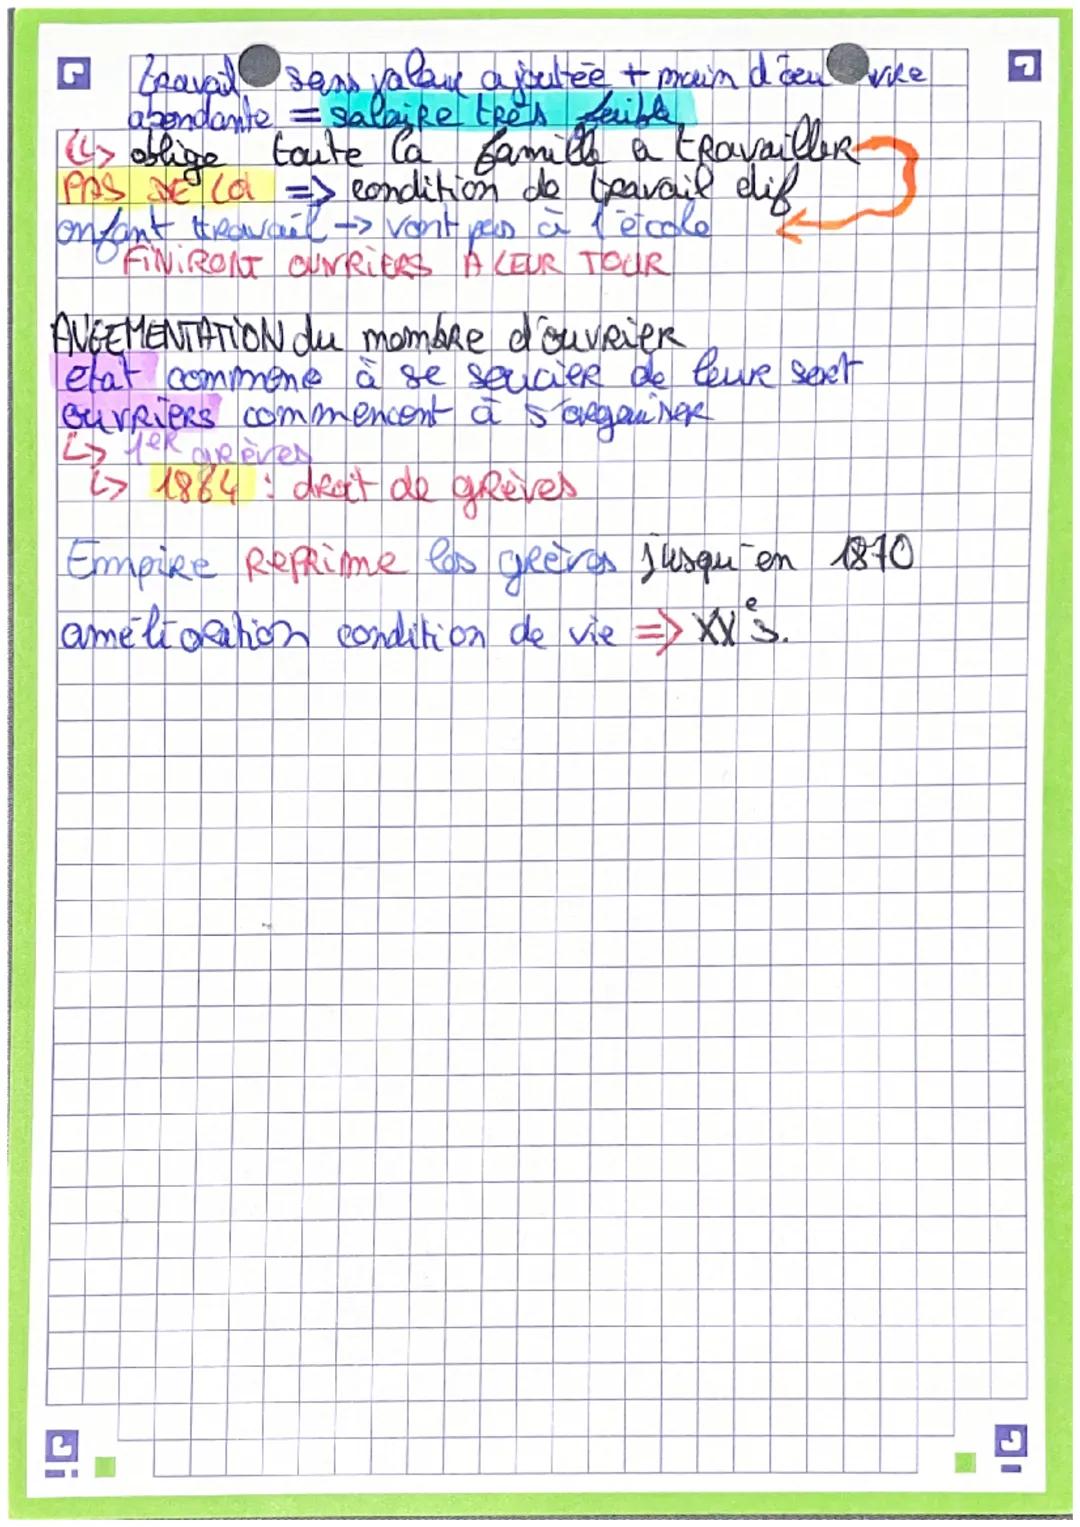 travail sans valeur ajoutée + main d'œuvre
abondante = salaire très faible
↳ oblige toute la famille a travailler
PAS DE LOI => condition de travail dif
enfant travail → vont pas à l'école
FiNiRONT OUVRiERS A LEUR TOUR
AUGEMENTATION du nombre d'ouvrier
état commence à se soucier de leur sort
ouvriers commencent à s'organiser
↳ 1er grèves
↳ 1864 : droit de grèves
Empire reprime les grèves jusqu'en 1870
amélioration condition de vie => XXe s.